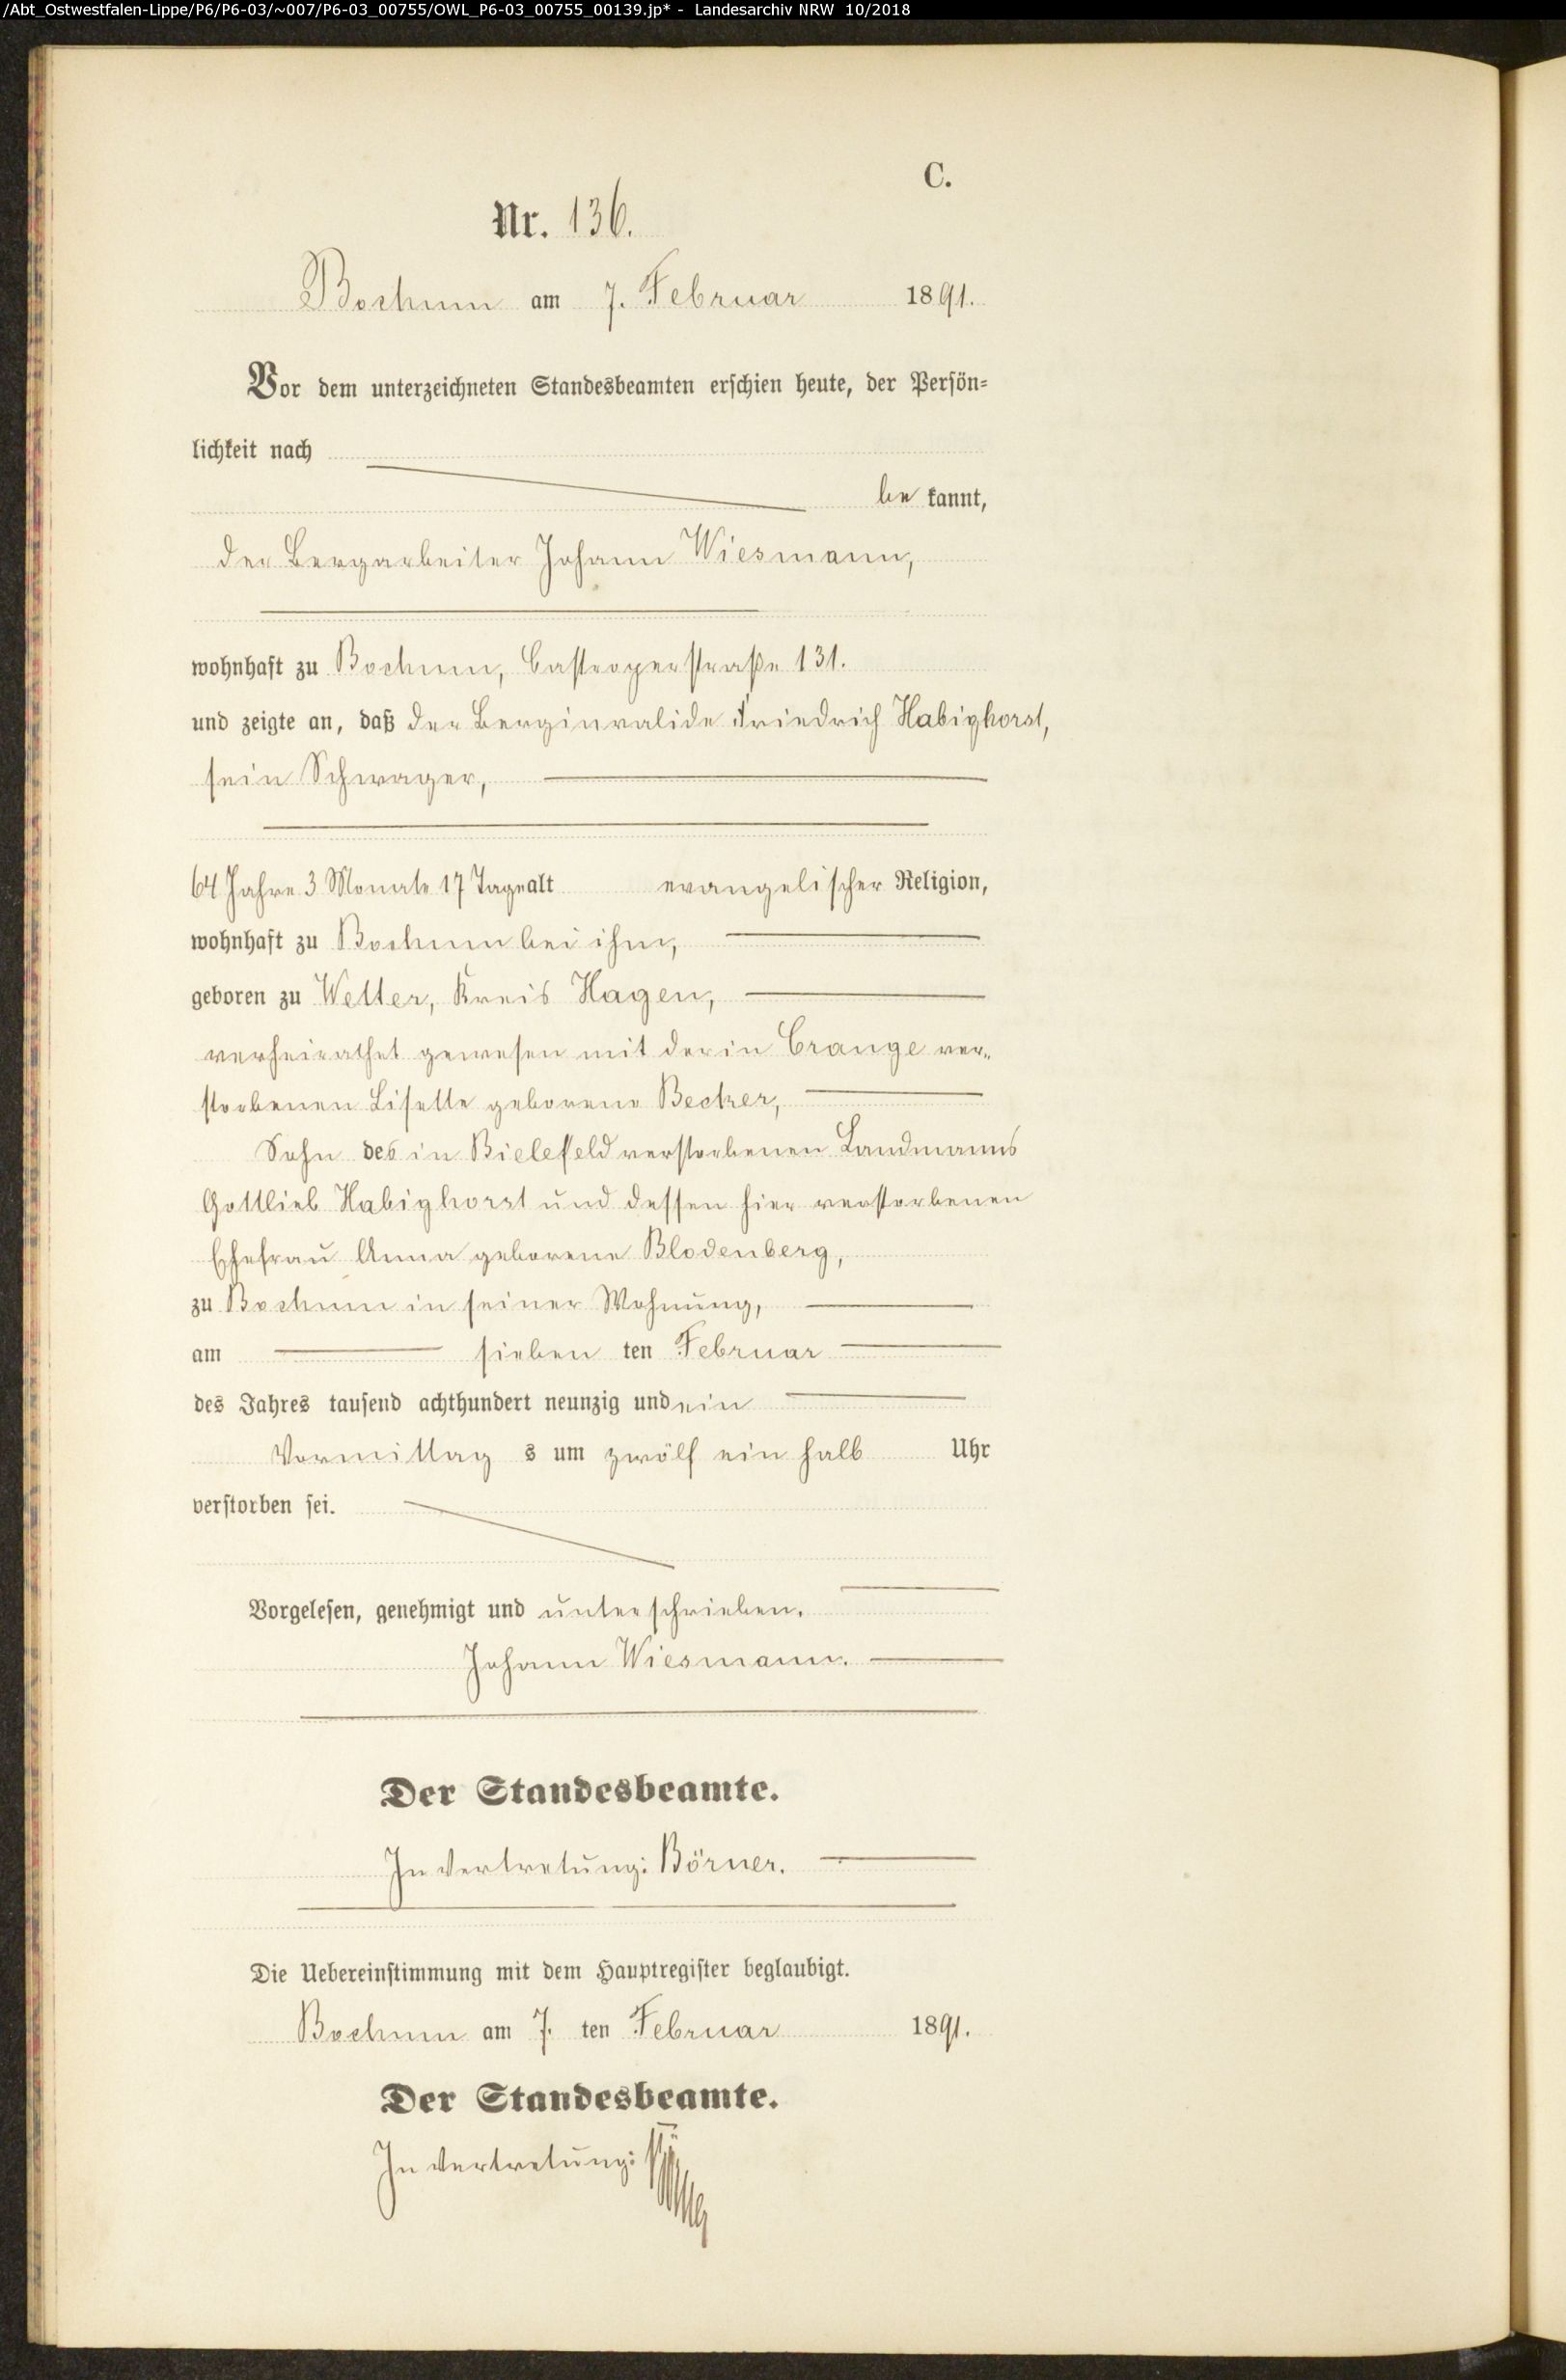 /Abt_Ostwestfalen-Lippe/P6/P6-03/~007/P6-03_00755/OWL_P6-03_00755_00139.jp* - Landesarchiv NRW 10/2018
C.
Nr. 136.
Bochum am 7. Februar 1891.
Vor dem unterzeichneten Standesbeamten erschien heute, der Persön-
lichkeit nach
be kannt,
der Bergarbeiter Johann Wiesmann,
wohnhaft zu Bochum, Castroperstraße 131.
und zeigte an, daß der Berginvalide Friedrich Habighorst,
sein Schwager,
64 Jahre 3 Monate 17 Tage alt evangelischer Religion,
wohnhaft zu Bochum bei ihm,
geboren zu Wetter, Kreis Hagen,
verheirathet gewesen mit der in Crange ver-
storbenen Lisette geborene Becker,
Sohn des in Bielefeld verstorbenen Landmanns
Gottlieb Habighorst und dessen hier verstorbenen
Ehefrau Anna geborene Blodenberg,
zu Bochum in seiner Wohnung,
am sieben ten Februar
des Jahres tausend achthundert neunzig und ein
Vormittag s um zwölf ein halb Uhr
verstorben sei.
Vorgelesen, genehmigt und unterschrieben.
Johann Wiesmann.
Der Standesbeamte.
In Vertretung: Börner.
Die Uebereinstimmung mit dem Hauptregister beglaubigt.
Bochum am 7. ten Februar 1891.
Der Standesbeamte.
In Vertretung: